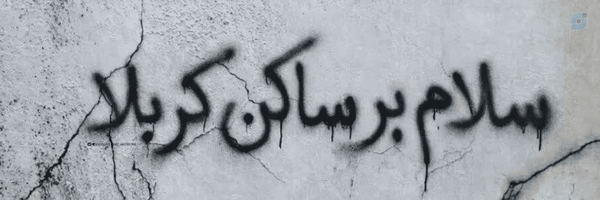 سلام بر ساکن کربلا